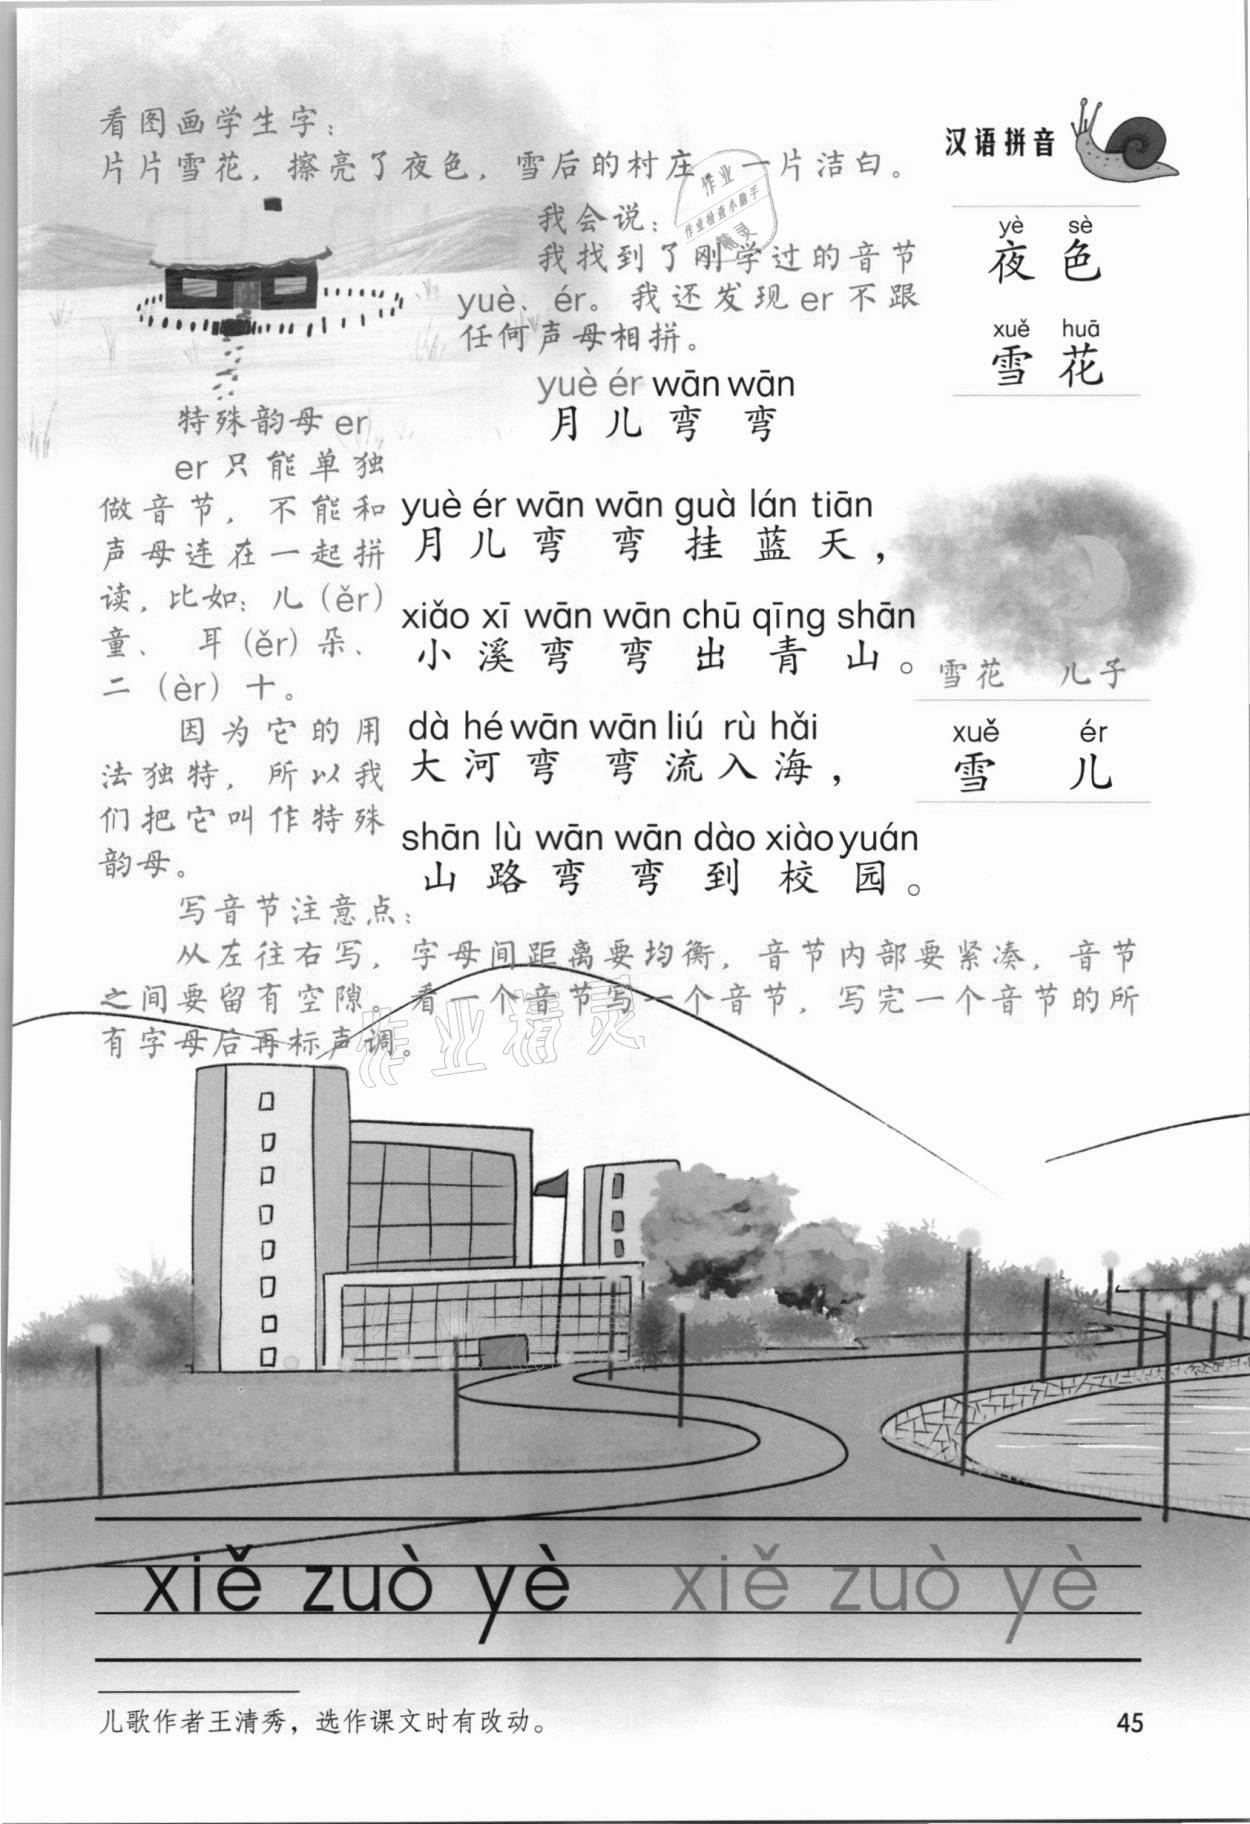 看图画学生字：
片片雪花，擦亮了夜色，雪后的村庄，一片洁白。
汉语拼音
作业
作业检查小助手
精灵
yè sè
夜色
xuě huā
雪花
我会说：
我找到了刚学过的音节
yuè、ér。我还发现er不跟
任何声母相拼。
yuè ér wān wān
月儿弯弯
特殊韵母er
er只能单独
做音节，不能和
声母连在一起拼
读，比如：儿（ěr）
童、耳（ěr）朵、
二（èr）十。
因为它的用
法独特，所以我
们把它叫作特殊
韵母。
yuè ér wān wān guà lán tiān
月儿弯弯挂蓝天，
xiǎo xī wān wān chū qīng shān
小溪弯弯出青山。
dà hé wān wān liú rù hǎi
大河弯弯流入海，
shān lù wān wān dào xiào yuán
山路弯弯到校园。
雪花 儿子
xuě ér
雪儿
写音节注意点：
从左往右写，字母间距离要均衡，音节内部要紧凑，音节
之间要留有空隙。看一个音节写一个音节，写完一个音节的所
有字母后再标声调。
作业精灵
xiě zuò yè xiě zuò yè
儿歌作者王清秀，选作课文时有改动。
45